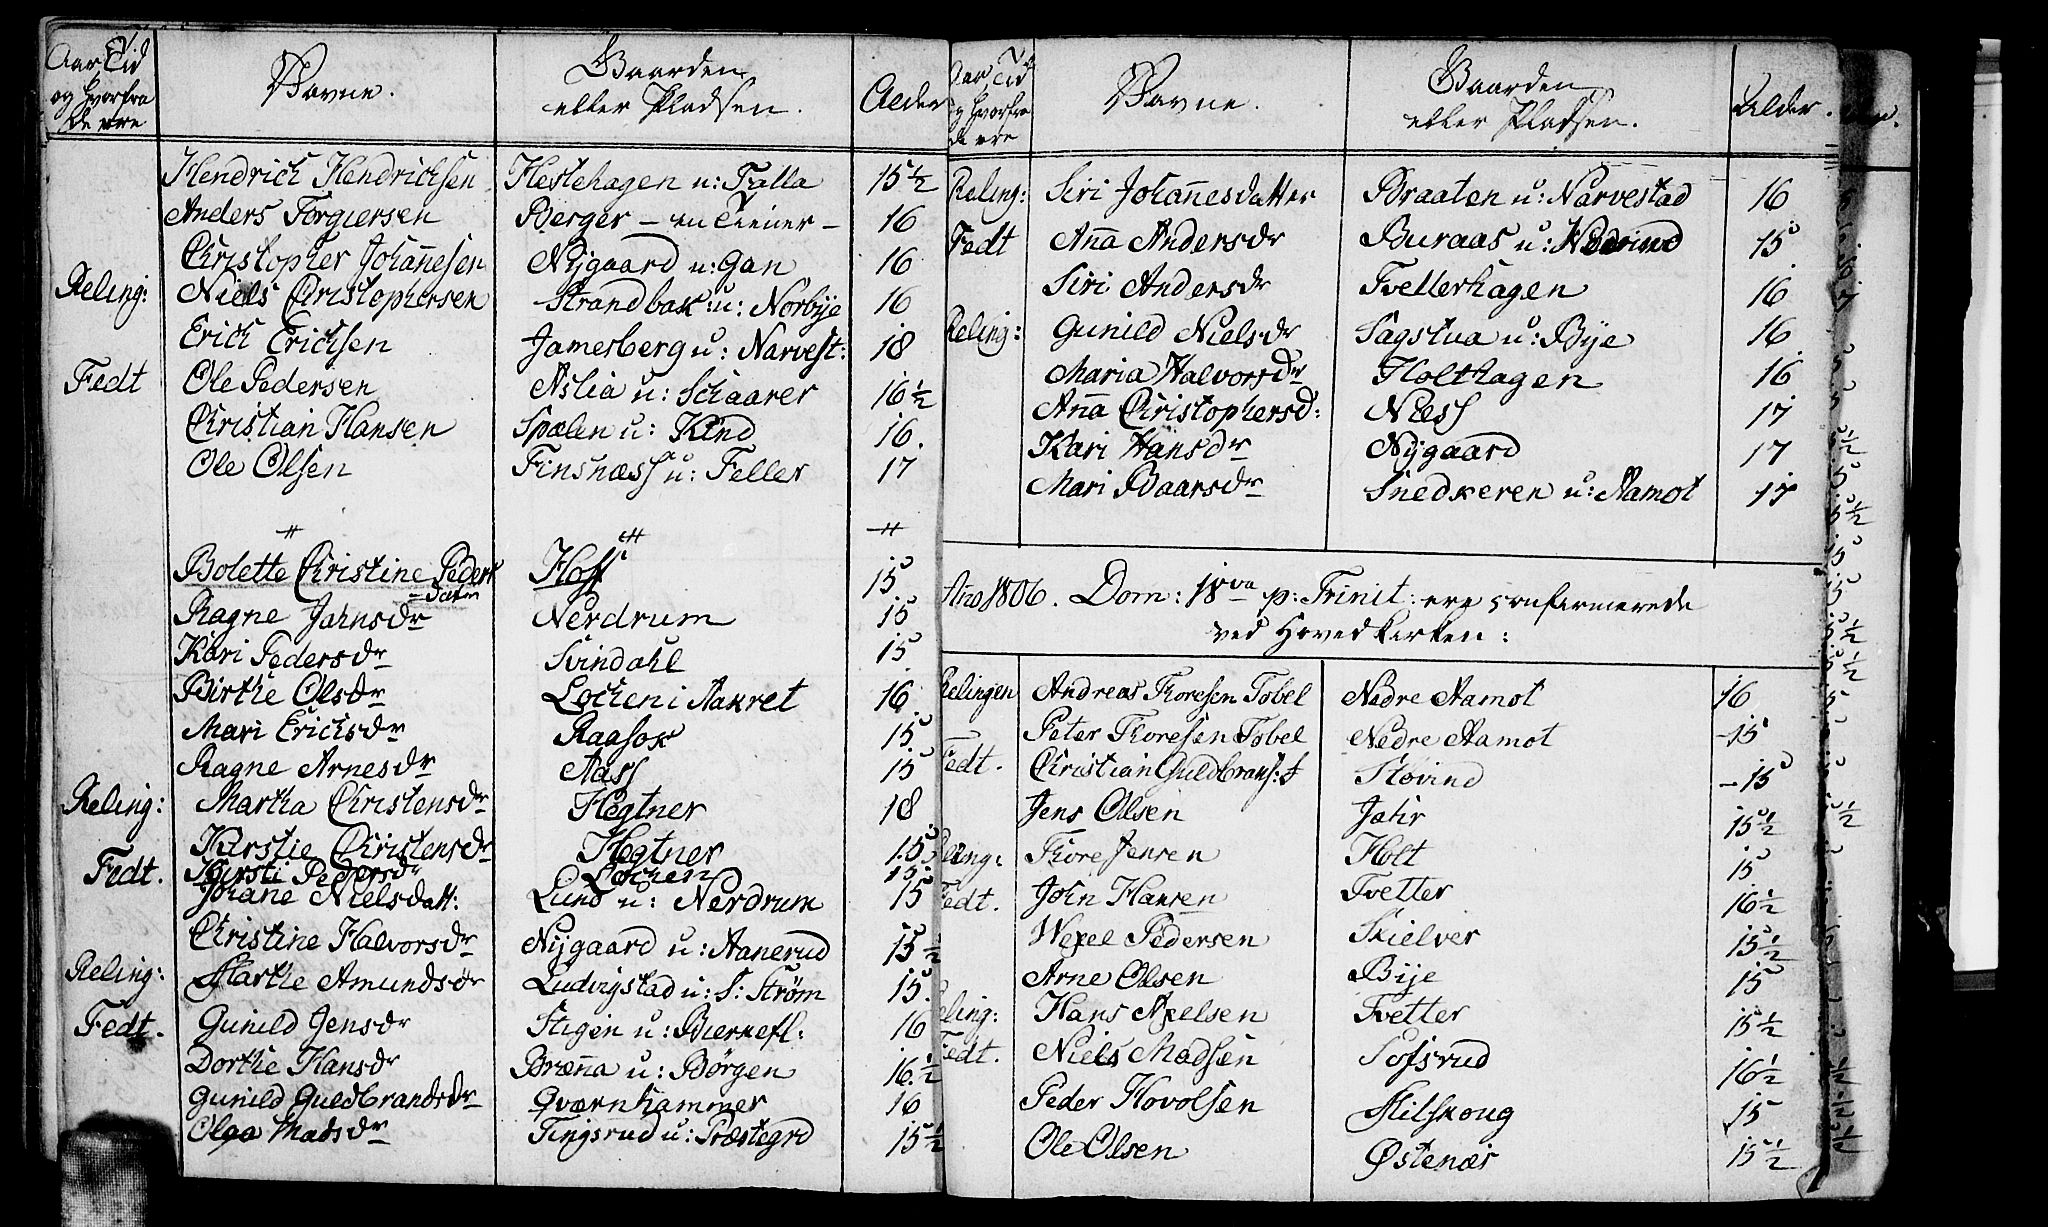 Aar Tid og hvorfra de ere | Navne. | Gaarden eller Pladsen. | Alder
Hendrich Hendrichsen | Hestehagen u: Falla | 15 1/2
Anders Torgiersen | Berger – en Tiener – | 16
Christopher Johannesen | Nygaard u: Gan | 16
Reling: Niels Christophersen | Strandbak u: Norbye | 16
Erich Erichsen | Jamerberg u: Narvest: | 18
Fedt Ole Pedersen | Aslia u: Schaarer | 16 1/2
Christian Hansen | Spælen u: Kind | 16.
Ole Olsen | Finsnæss u: Feller | 17
Bolette Christine Peders datter | Hoff | 15
Ragne Jahnsdr | Nerdrum | 15
Kari Pedersdr | Svindahl | 15
Birthe Olsdr | Lochen i Aakret | 16
Mari Erichsdr | Raasok | 15
Ragne Arnesdr | Aass | 15
Reling: Martha Christensdr | Hegtner | 18
Kirstie Christensdr | Hegtner | 15
Fedt. Kirsti Pedersdr | Lochen | 15
Johane Nielsdatt: | Lund u: Nerdrum | 15
Christine Halvorsdr | Nygaard u: Aanerud | 15 1/2
Reling: Marthe Amundsdr | Ludvigstad u: S: Strøm | 15.
Fedt. Gunild Jensdr | Stigen u: Bierkefl: | 16
Dorthe Hansdr | Brænna u: Børgen | 16 1/2
Gunild Guldbrandsdr | Qværnhammer | 16
Olga Madsdr | Tingsrud u: Præstegrd | 15 1/2
Aar Tid og hvorfra de ere | Navne. | Gaarden eller Pladsen. | Alder.
Reling: Siri Johannesdatter | Braaten u: Narvestad | 16
Fedt Anna Andersdr | Buraas u: | 15
Siri Andersdr | Tvetterhagen | 16
Reling: Gunild Nielsdr | Sagstua u: Bye | 16
Maria Halvorsdr | Holthagen | 16
Anna Christophersd: | Næss | 17
Kari Hansdr | Nygaard | 17
Mari Baarsdr | Snedkeren u: Aamot | 17
Ano 1806. Dom: 18va p: Trinit: ere confirmerede
ved Hovedkirken:
Relingen Andreas Thoresen Tobel | Nedre Aamot | 16
Peter Thoresen Tobel | Nedre Aamot | 15
Fedt. Christian Guldbrans: | Støvind | 15
Jens Olsen | Jahr | 15 1/2
Reling: Thore Jensen | Holt | 15
Fedt. John Hansen | Tvetter | 16 1/2
Wexel Pedersen | Skielver | 15 1/2
Arne Olsen | Bije | 15
Reling: Hans Axelsen | Tvetter | 15 1/2
Fedt. Niels Madsen | Tofsrud | 16 1/2
Peder Hovolsen | Hilskoug | 15
Ole Olsen | Østenær | 15 1/2